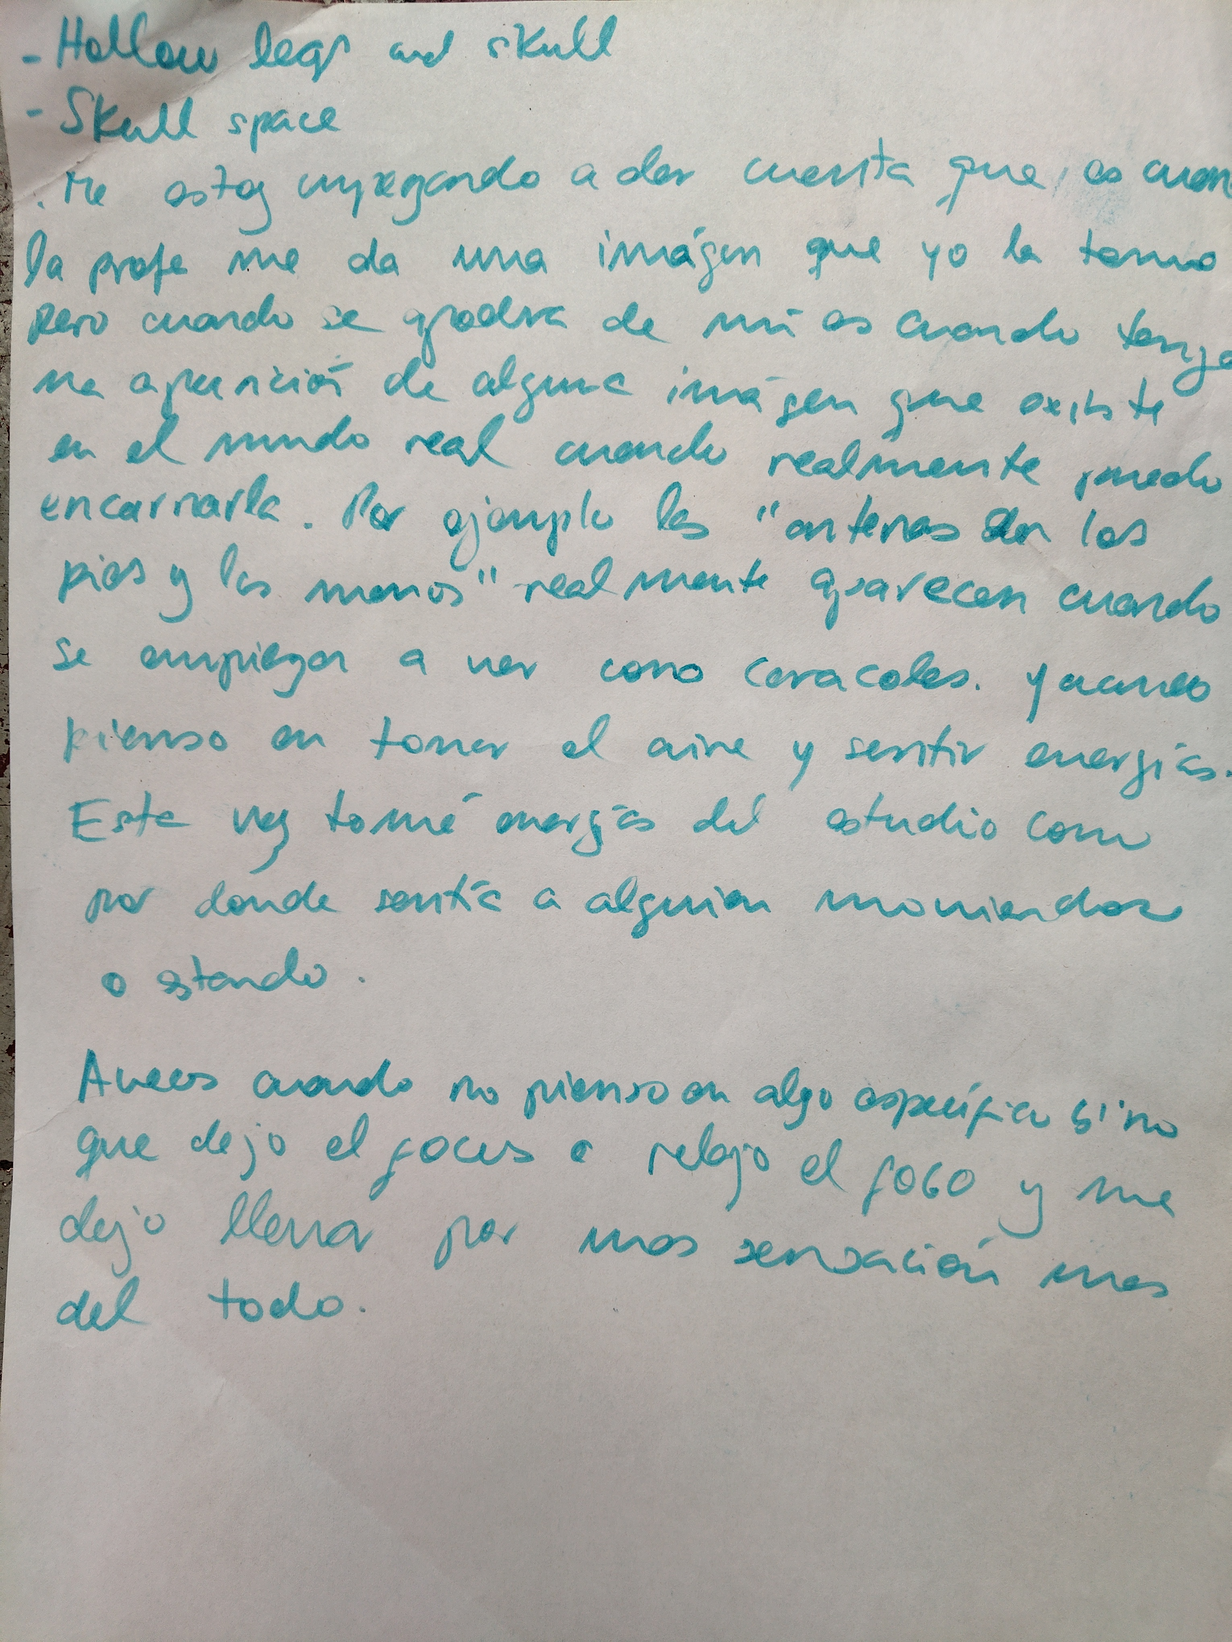 - Hollow legs and skull
- Skull space
. Me estoy empezando a dar cuenta que es cuan
la profe me da una imágen que yo la tomo
pero cuando se apodera de mí es cuando tengo
na aparición de alguna imágen que existe
en el mundo real cuando realmente puedo
encarnarla. Por ejemplo las "antenas en los
pies y las manos" realmente aparecen cuando
se empiezan a ver como caracoles. Y cuando
pienso en tomar el aire y sentir energías.
Esta vez tomé energías del estudio como
por donde sentía a alguien moviendose
o estando.
Aveces cuando no pienso en algo específico sino
que dejo el focus o relajo el foco y me
dejo llevar por unas sensación mas
del todo.